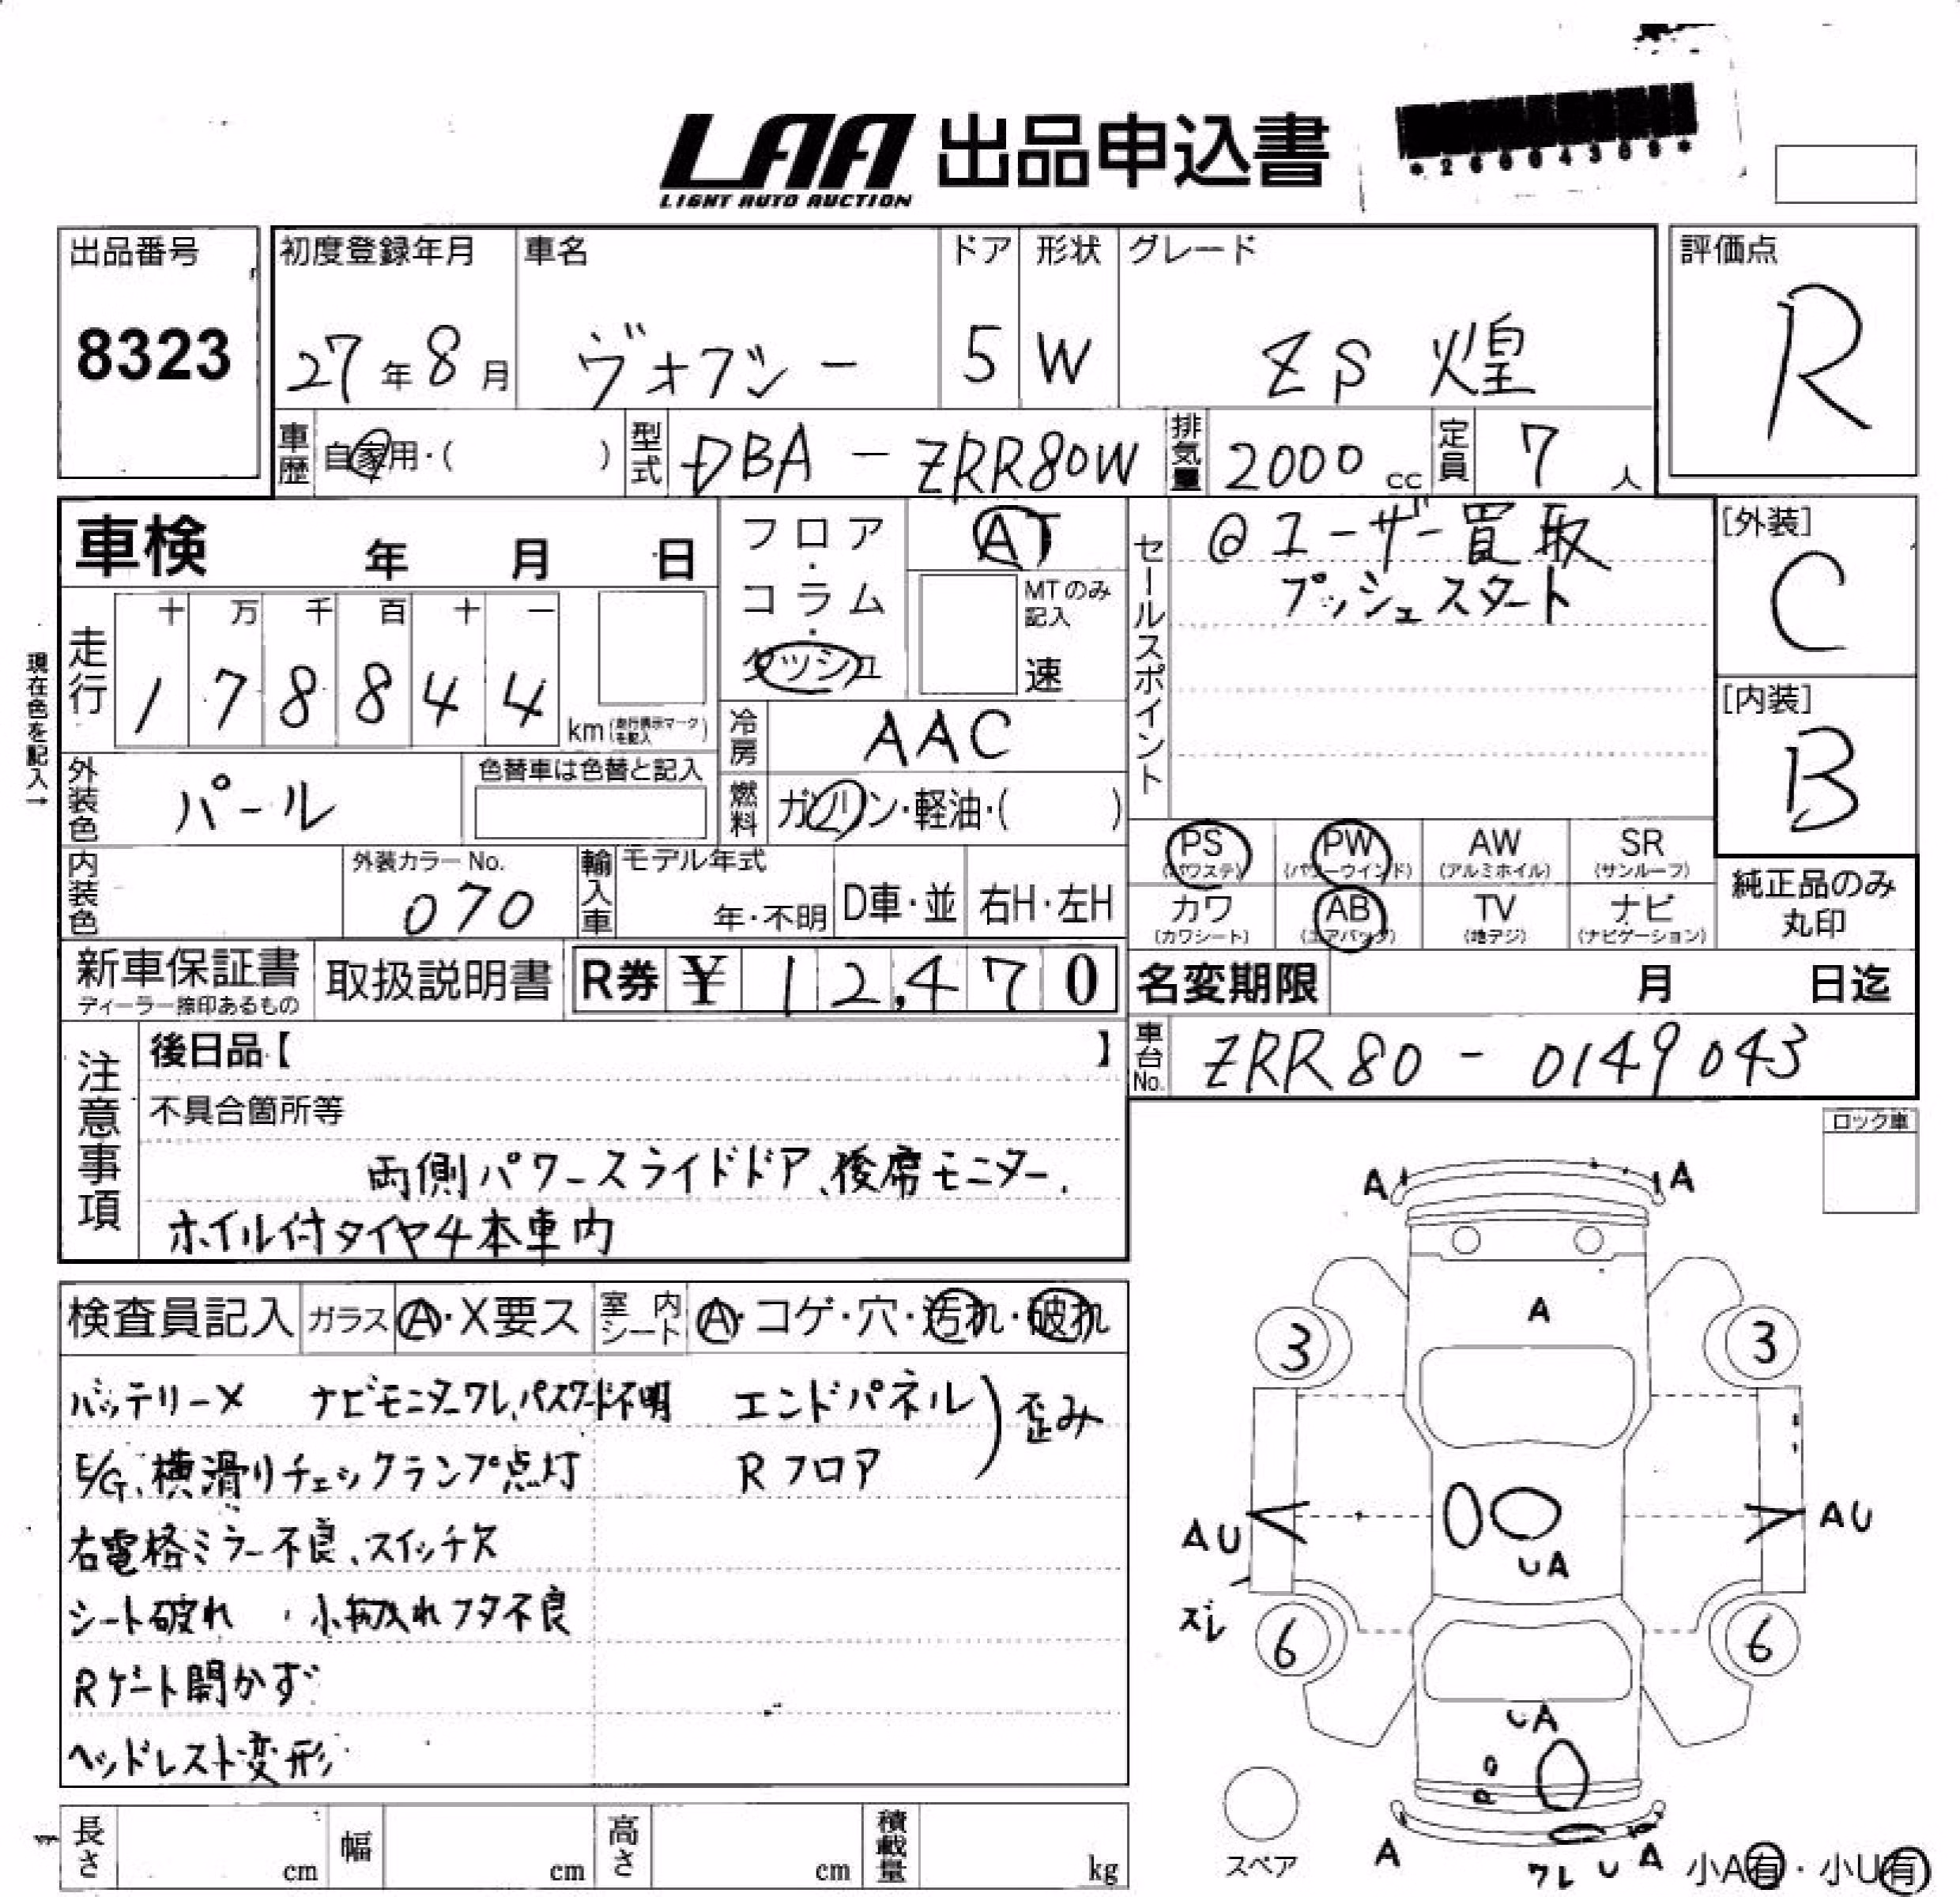 LAA 出品申込書
LIGHT AUTO AUCTION
出品番号
8323
初度登録年月
27年8月
車名
ヴォクシー
ドア
5
形状
W
グレード
ZS 煌
評価点
R
車歴
自家用・( )
型式
DBA - ZRR80W
排気量
2000 cc
定員
7 人
車検 年 月 日
フロア・コラム・ダッシュ
AT
MTのみ記入
速
セールスポイント
@ユーザー買取
プッシュスタート
[外装]
C
[内装]
B
現在色を記入→
走行
十 万 千 百 十 一
1 7 8 8 4 4
km(走行表示マークを記入)
冷房
AAC
外装色
パール
色替車は色替と記入
燃料
ガソリン・軽油・( )
内装色
外装カラーNo.
070
輸入車
モデル年式
年・不明
D車・並
右H・左H
PS
(パワステ)
PW
(パワーウインド)
AW
(アルミホイル)
SR
(サンルーフ)
カワ
(カワシート)
AB
(エアバック)
TV
(地デジ)
ナビ
(ナビゲーション)
純正品のみ
丸印
新車保証書
ディーラー捺印あるもの
取扱説明書
R券 ¥ 12,470
名変期限 月 日迄
車台No.
ZRR80 - 0149043
注意事項
後日品【 】
不具合箇所等
両側パワースライドドア、後席モニター、
ホイル付タイヤ4本車内
ロック車
検査員記入
ガラス
A・X要ス
室内シート
A・コゲ・穴・汚れ・破れ
バッテリーX ナビモニターワレ、パスワード不明 エンドパネル
Rフロア
歪み
E/G、横滑りチェックランプ点灯
右電格ミラー不良、スイッチ欠
シート破れ ・小物入れフタ不良
Rゲート開かず
ヘッドレスト変形
A A
A
3 3
AU AU
UA
ズレ
6 6
UA
スペア
A ワレ U A
小A有・小U有
長さ cm
幅 cm
高さ cm
積載量 kg